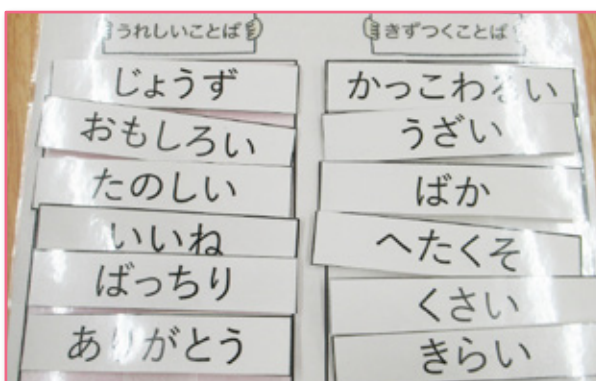 うれしいことば
じょうず
おもしろい
たのしい
いいね
ばっちり
ありがとう
きずつくことば
かっこわるい
うざい
ばか
へたくそ
くさい
きらい